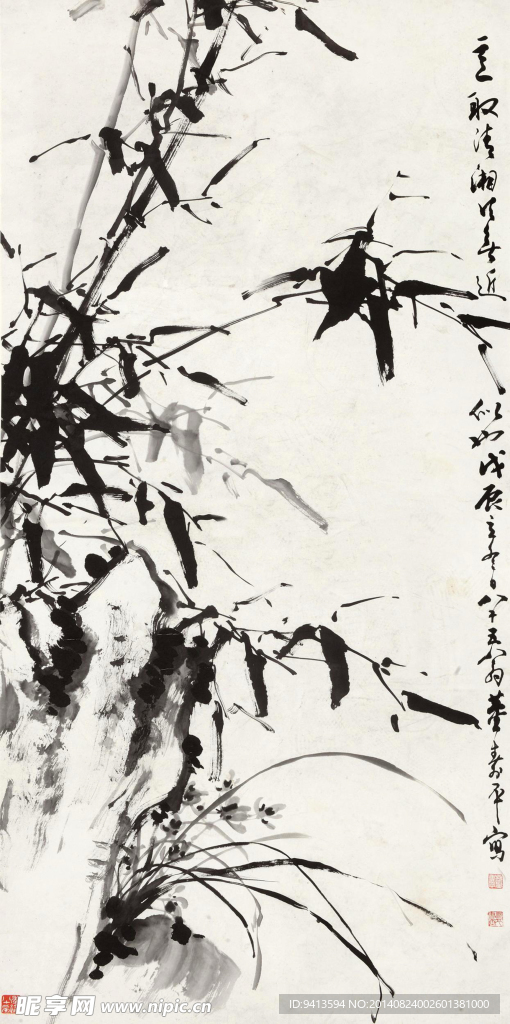 意取清湘得者近
似如戊辰立冬日八十五翁董寿平写
昵享网 www.nipic.cn
ID:9413594 NO:20140824002601381000